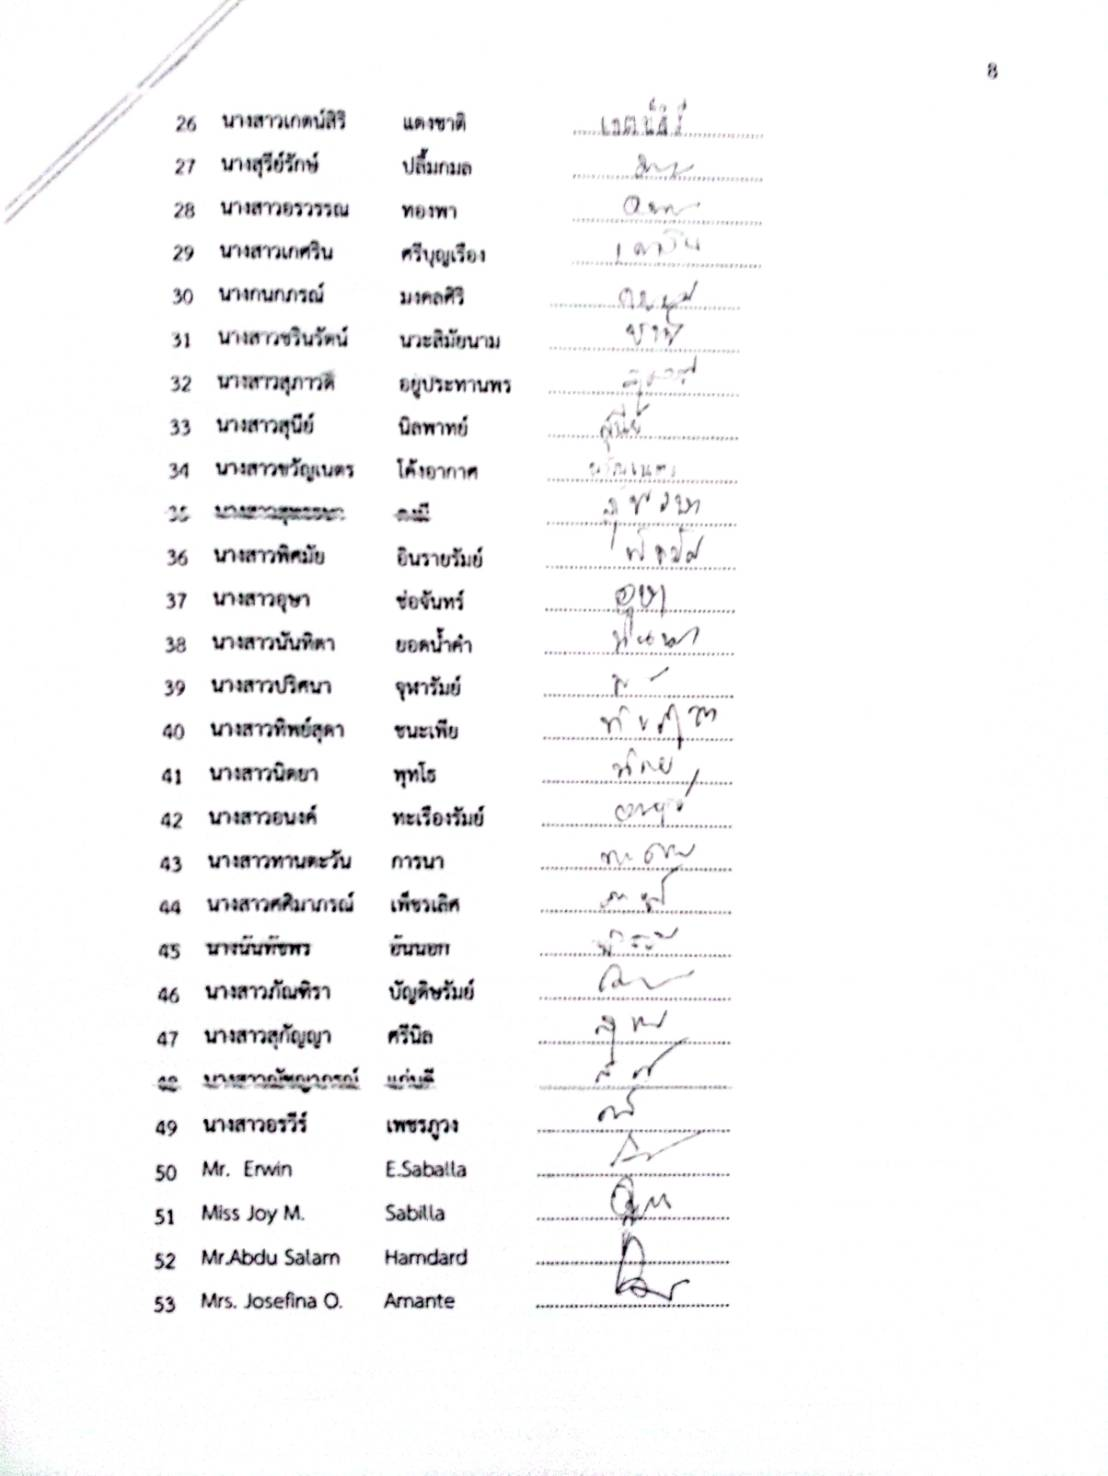 8
26 นางสาวเกตน์สิริ แดงชาติ เกตน์สิริ
27 นางสุรีย์รักษ์ ปลื้มกมล
28 นางสาวอรวรรณ ทองพา
29 นางสาวเกศริน ศรีบุญเรือง
30 นางกนกภรณ์ มงคลศิริ
31 นางสาวชรินรัตน์ นวะสิมัยนาม
32 นางสาวสุภาวดี อยู่ประทานพร
33 นางสาวสุนีย์ นิลพาทย์ สุนีย์
34 นางสาวขวัญเนตร โค้งอากาศ ขวัญเนตร
35
36 นางสาวพิศมัย อินรายรัมย์
37 นางสาวอุษา ช่อจันทร์ อุษา
38 นางสาวนันทิตา ยอดน้ำคำ
39 นางสาวปริศนา จุฬารัมย์
40 นางสาวทิพย์สุดา ชนะเพีย
41 นางสาวนิตยา พุทโธ
42 นางสาวอนงค์ ทะเรืองรัมย์
43 นางสาวทานตะวัน การนา
44 นางสาวศศิมาภรณ์ เพ็ชรเลิศ
45 นางนันทัชพร อ้นนอก
46 นางสาวภัณฑิรา บัญดิษรัมย์
47 นางสาวสุกัญญา ศรีนิล
48 นางสาวณัชญาภรณ์ แก่นดี
49 นางสาวอรวีร์ เพชรภูวง
50 Mr. Erwin E.Saballa
51 Miss Joy M. Sabilla
52 Mr.Abdu Salam Hamdard
53 Mrs. Josefina O. Amante